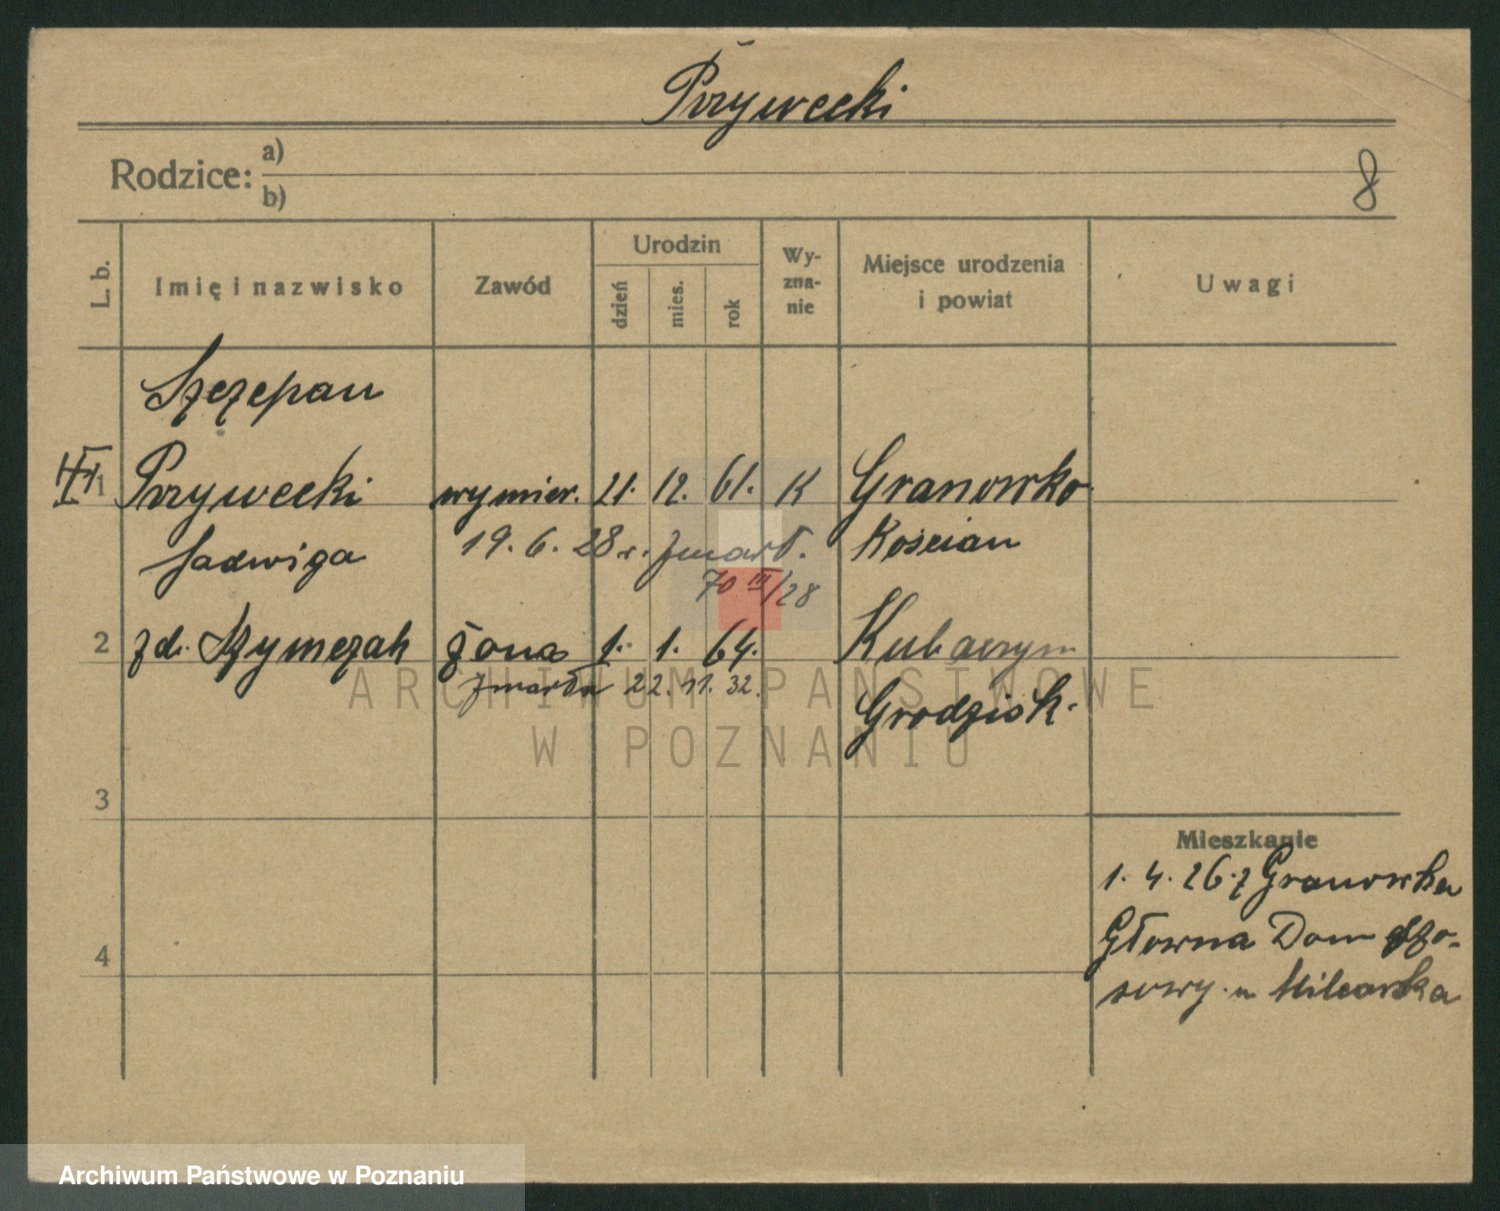 Przywecki
Rodzice: a)
b)
8
L. b.
Imię i nazwisko
Zawód
Urodzin
dzień
mies.
rok
Wy-
zna-
nie
Miejsce urodzenia
i powiat
Uwagi
Szczepan
1 Przywecki wymier. 21. 12. 61. K Granowko
Kościan
19. 6. 28 r. zmarł.
70 III/28
Jadwiga
2 zd. Szymczak żona 1. 1. 64.
Grodzisk.
zmarła 22. 11. 32.
3
4
Mieszkanie
1. 4. 26. z Granowka
Główna Dom
u
ARCHIWUM PAŃSTWOWE
W POZNANIU
Archiwum Państwowe w Poznaniu